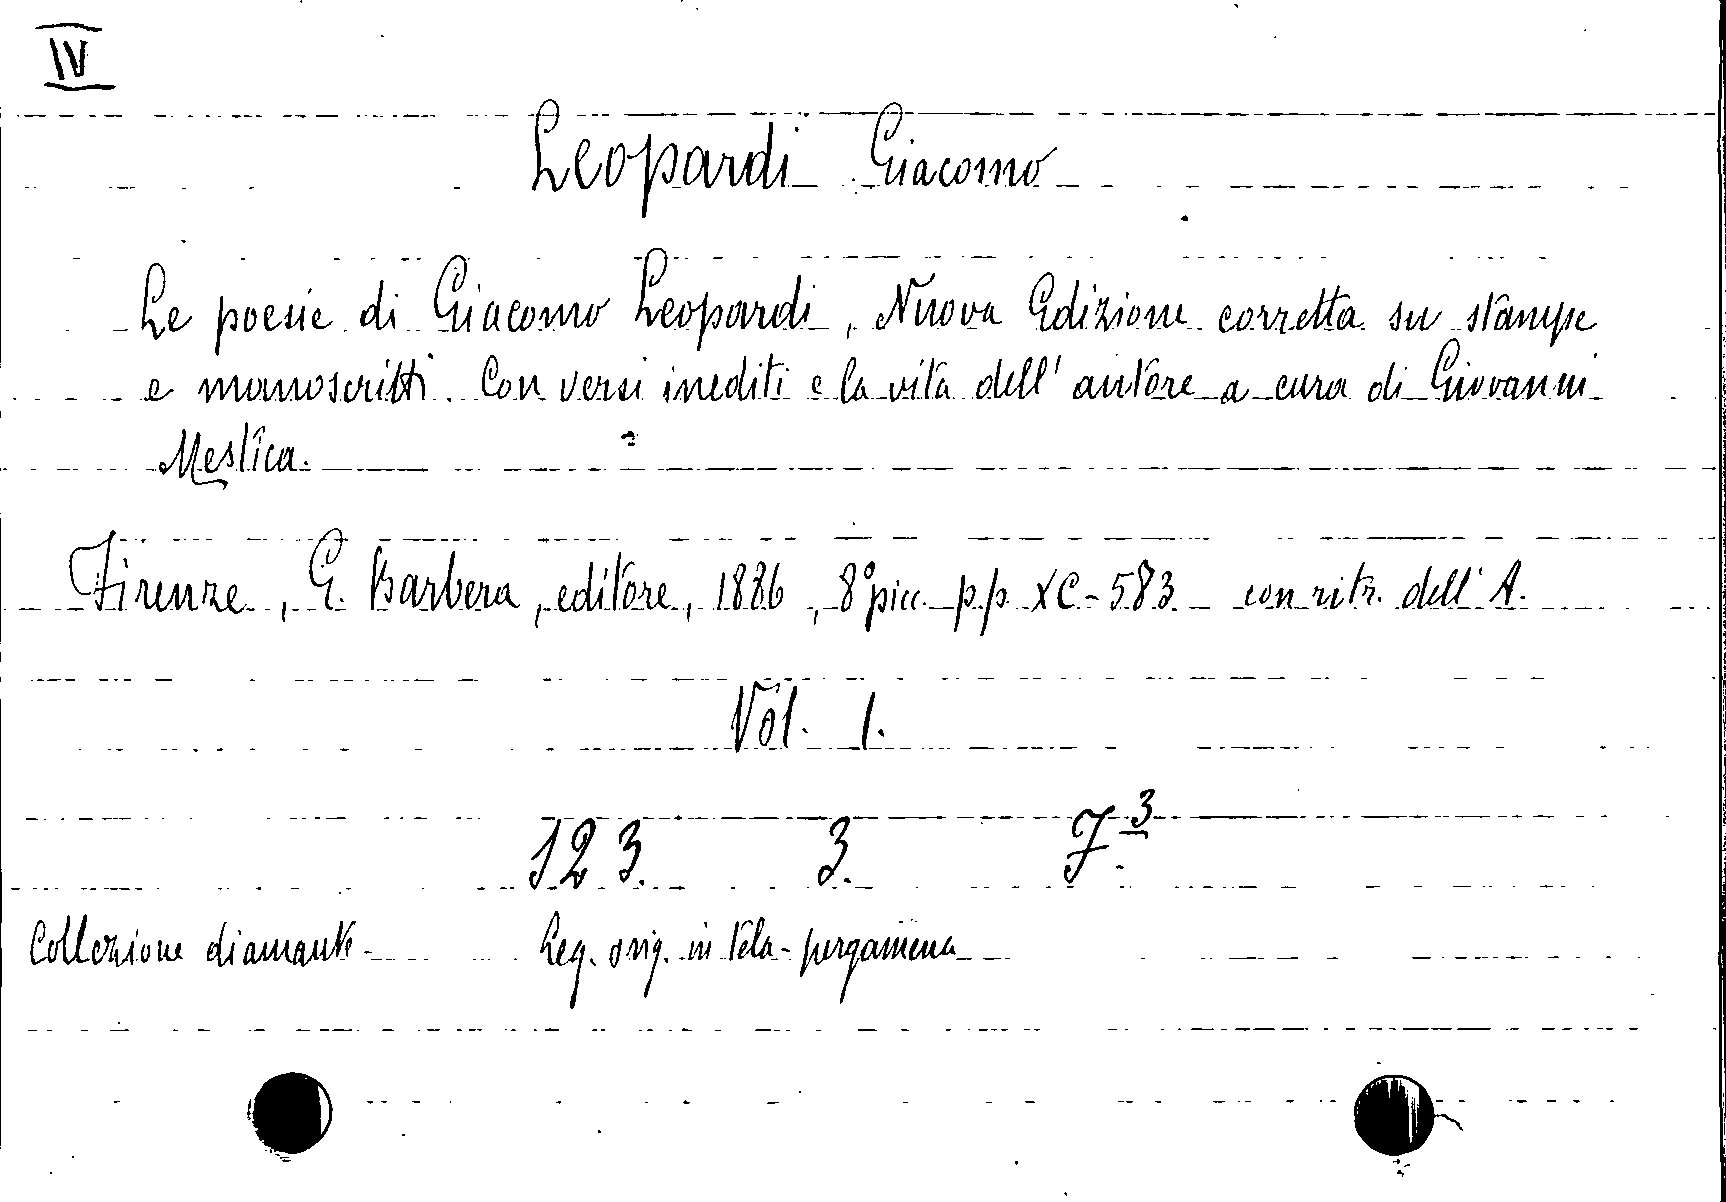 IV
Leopardi Giacomo
Le poesie di Giacomo Leopardi, Nuova Edizione corretta su stampe
e manoscritti. Con versi inediti e la vita dell' autore a cura di Giovanni
Mestica.
Firenze, G. Barbera, editore, 1886, 8º picc. pp. XC-583 con ritr. dell' A.
Vol. 1.
123. 3. 7.3
Collezione diamante Leg. orig. in tela-pergamena